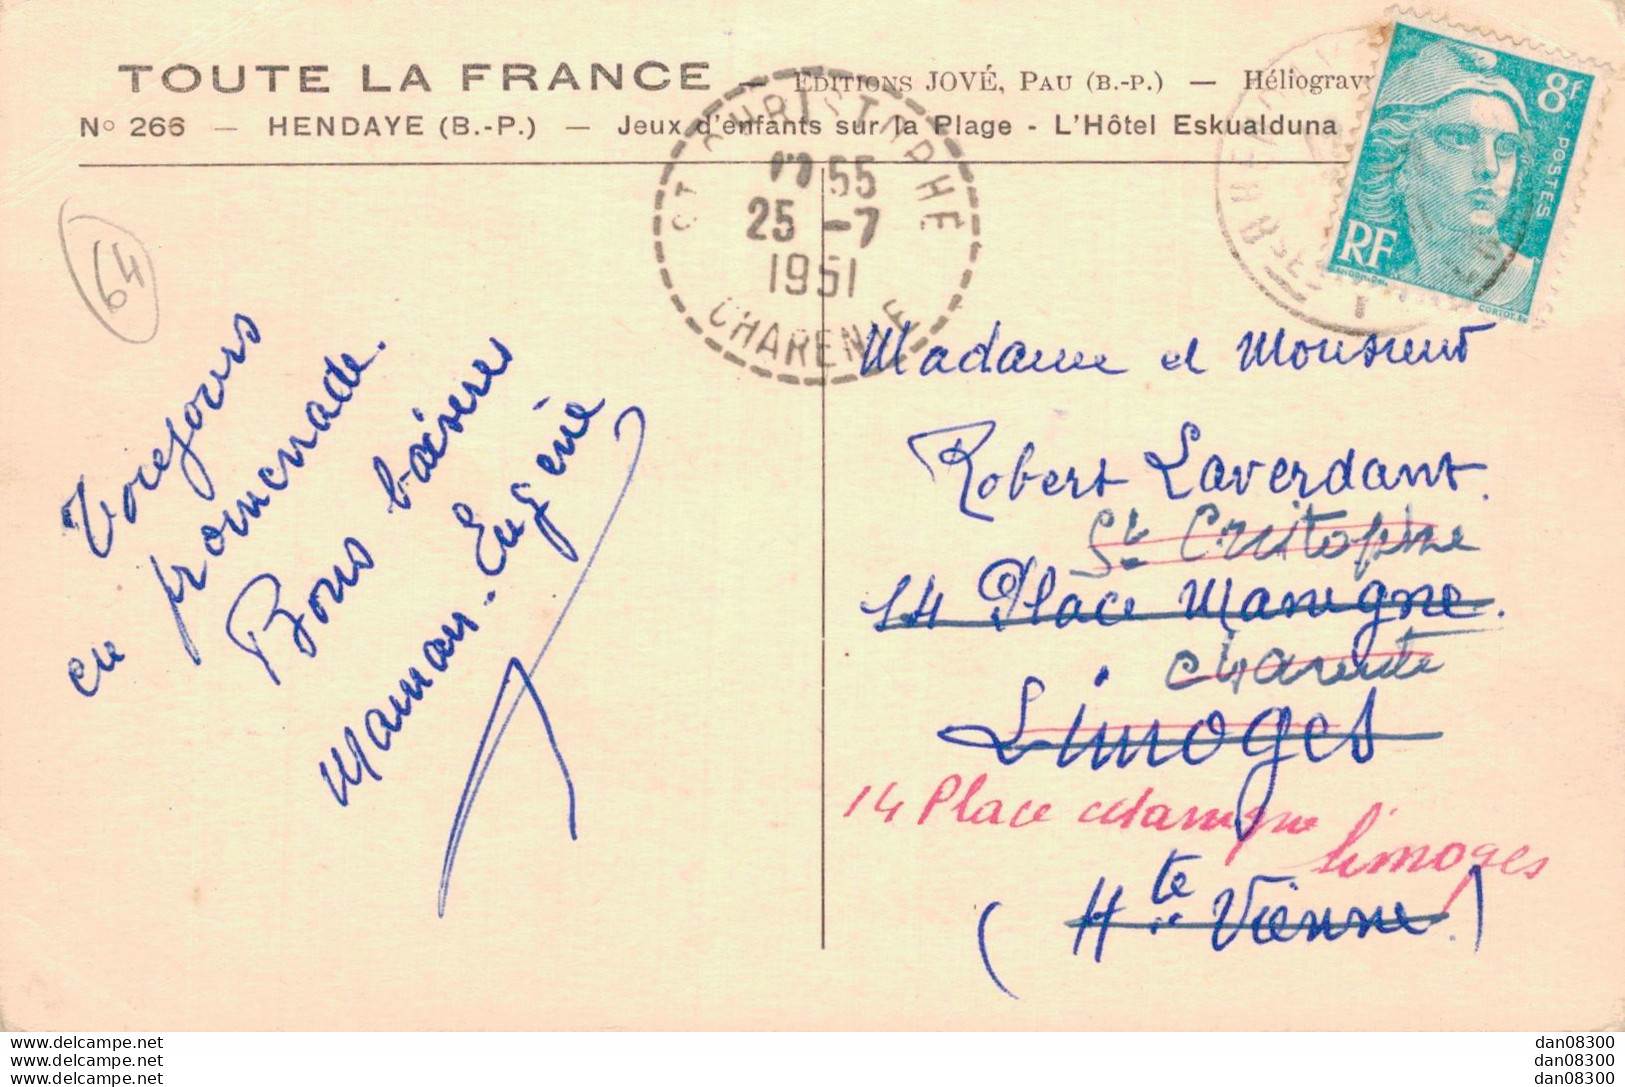 TOUTE LA FRANCE — EDITIONS JOVÉ, PAU (B.-P.) — Héliogravu
N° 266 — HENDAYE (B.-P.) — Jeux d'enfants sur la Plage - L'Hôtel Eskualduna
55
25 -7
1951
CHARENTE
8F
POSTES
RF
CORTOT.SC
64
Toujours
en promenade.
Bons baisers
Maman-Eugénie
Madame et Monsieur
Robert Laverdant.
St Critophe
14 Place Manigne.
charente
Limoges
14 Place Manigne
limoges
(Hte Vienne)
www.delcampe.net
www.delcampe.net
www.delcampe.net
dan08300
dan08300
dan08300